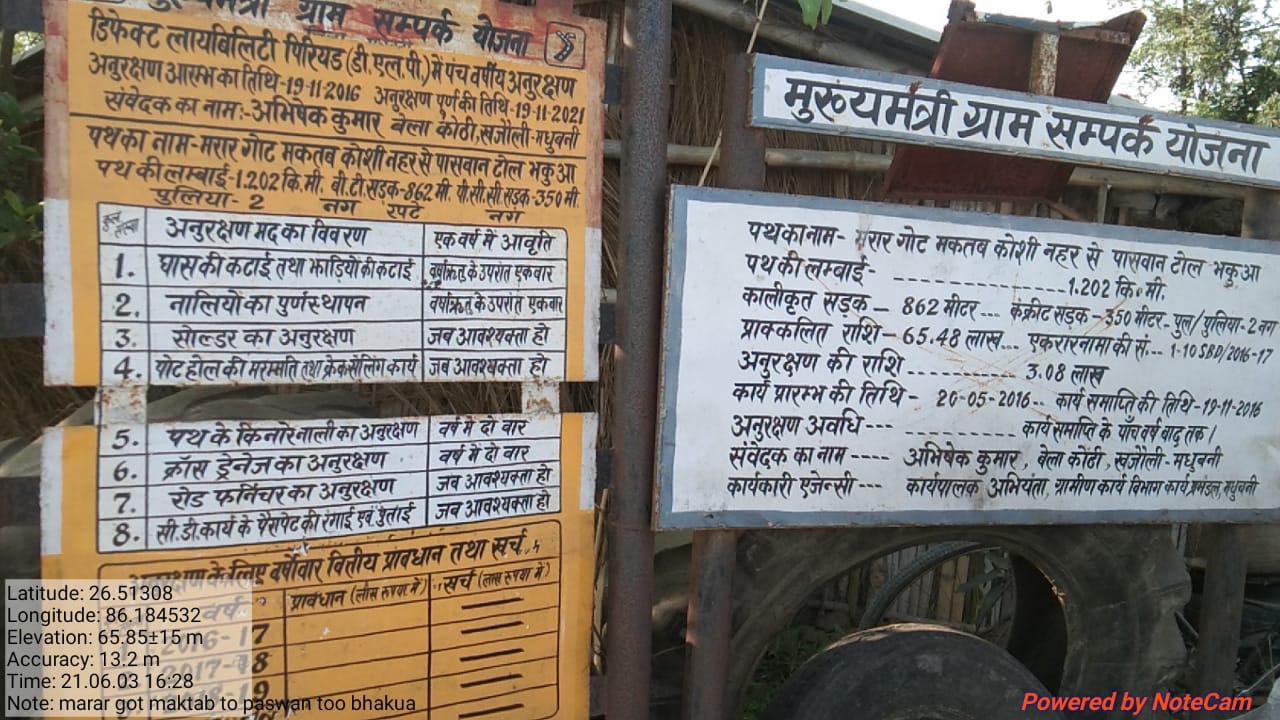 मुख्यमंत्री ग्राम सम्पर्क योजना
डिफेक्ट लायबिलिटी पिरियड (डी.एल.पी.) में पंच वर्षीय अनुरक्षण
अनुरक्षण आरम्भ का तिथि-19-11-2016 अनुरक्षण पूर्ण की तिथि-19-11-2021
संवेदक का नाम:-अभिषेक कुमार बेला कोठी,खजौली-मधुबनी
पथ का नाम-मरार गोट मकतब कोशी नहर से पासवान टोल भकुआ
पथ की लम्बाई-1.202 कि.मी. बी.टी सड़क-862 मी. पी.सी.सी सड़क-350 मी.
पुलिया-2 नग रपटे नग
अनुरक्षण मद का विवरण एक वर्ष में आवृति
1. घास की कटाई तथा झाड़ियों की कटाई वर्षाऋतु के उपरांत एकवार
2. नालियों का पुर्णस्थापन वर्षाऋतु के उपरांत एकवार
3. सोल्डर का अनुरक्षण जब आवश्यक्ता हो
4. पोट होल की मरम्मति तथा क्रेक सीलिंग कार्य जब आवश्यक्ता हो
5. पथ के किनारे नाली का अनुरक्षण वर्ष में दो वार
6. क्रॉस ड्रेनेज का अनुरक्षण वर्ष में दो वार
7. रोड फर्निचर का अनुरक्षण जब आवश्यक्ता हो
8. सी.डी.कार्य के पैरापेट की रंगाई एवं ढुलाई जब आवश्यक्ता हो
अनुरक्षण के लिए वर्षावार वित्तीय प्रावधान तथा खर्च
वर्ष प्रावधान (लाख रुपया में) खर्च (लाख रुपया में)
2016-17
2017-18
2018-19
मुख्यमंत्री ग्राम सम्पर्क योजना
पथ का नाम- मरार गोट मकतब कोशी नहर से पासवान टोल भकुआ
पथ की लम्बाई- 1.202 कि.मी.
कालीकृत सड़क- 862 मीटर--- कंक्रीट सड़क-350 मीटर- पुल/पुलिया-2 नग
प्राक्कलित राशि-65.48 लाख... एकरारनामा की सं... 1-10 SBD/2016-17
अनुरक्षण की राशि 3.08 लाख
कार्य प्रारम्भ की तिथि- 20-05-2016-- कार्य समाप्ति की तिथि-19-11-2016
अनुरक्षण अवधि --- कार्य समाप्ति के पाँच वर्ष बाद तक।
संवेदक का नाम ---- अभिषेक कुमार, बेला कोठी, खजौली-मधुबनी
कार्यकारी एजेन्सी --- कार्यपालक अभियंता, ग्रामीण कार्य विभाग कार्य प्रमंडल, मधुबनी
Latitude: 26.51308
Longitude: 86.184532
Elevation: 65.85±15 m
Accuracy: 13.2 m
Time: 21.06.03 16:28
Note: marar got maktab to paswan too bhakua
Powered by NoteCam